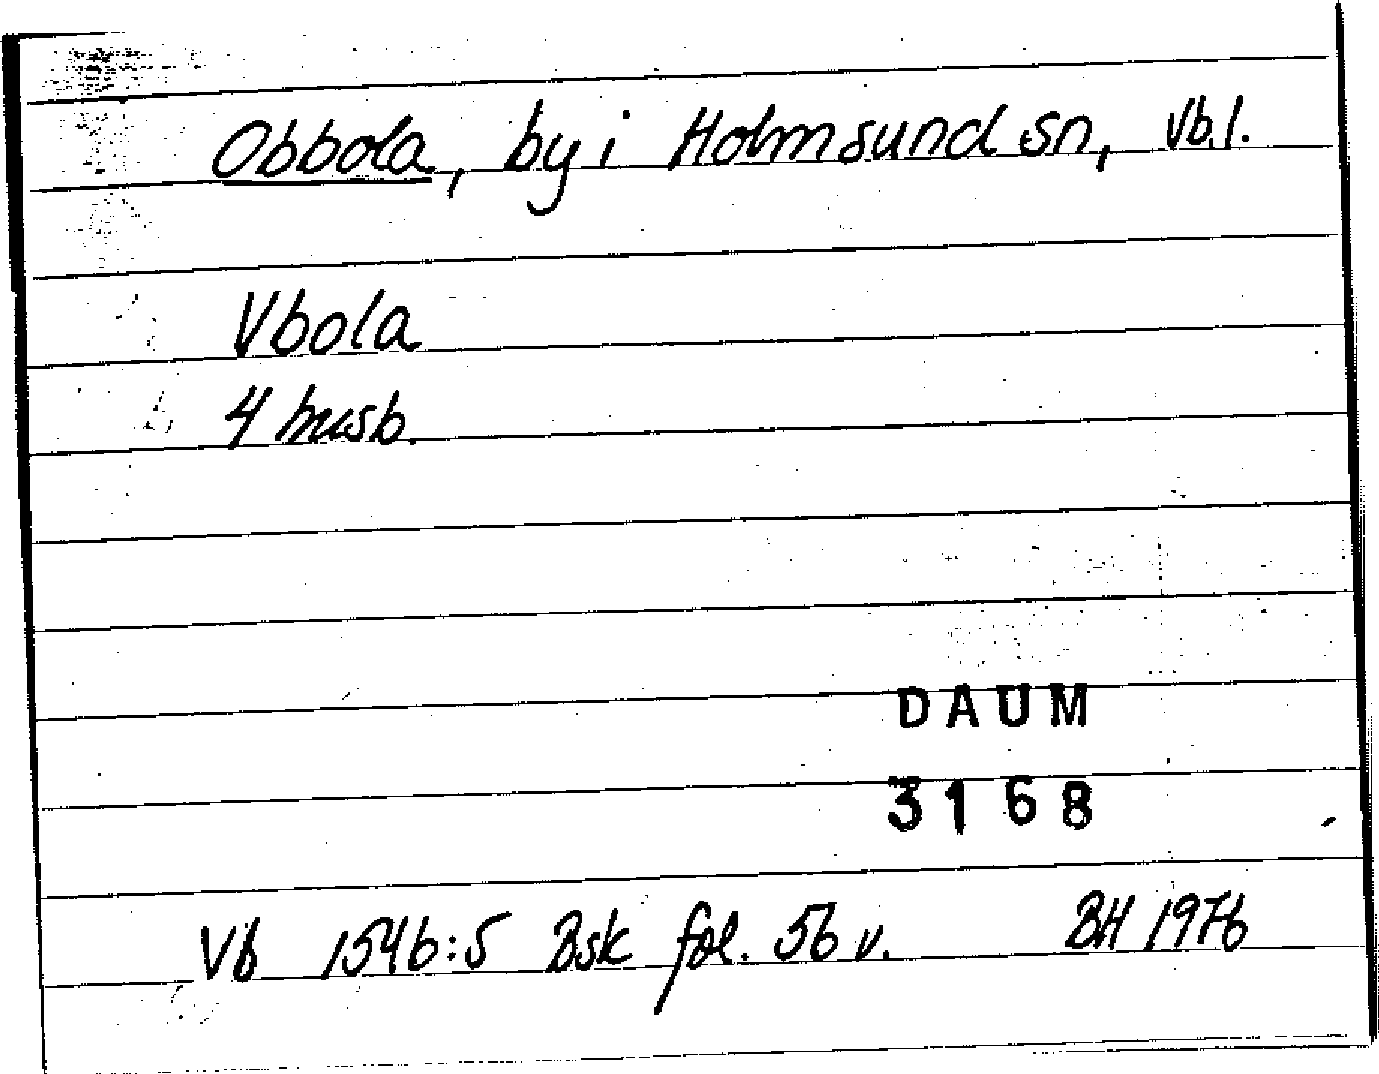 Obbola, by i Holmsund sn, Vb.l.
Vbola
4 husb.
DAUM
3168
Vb 1546:5 Bsk fol. 56 v. BH 1976